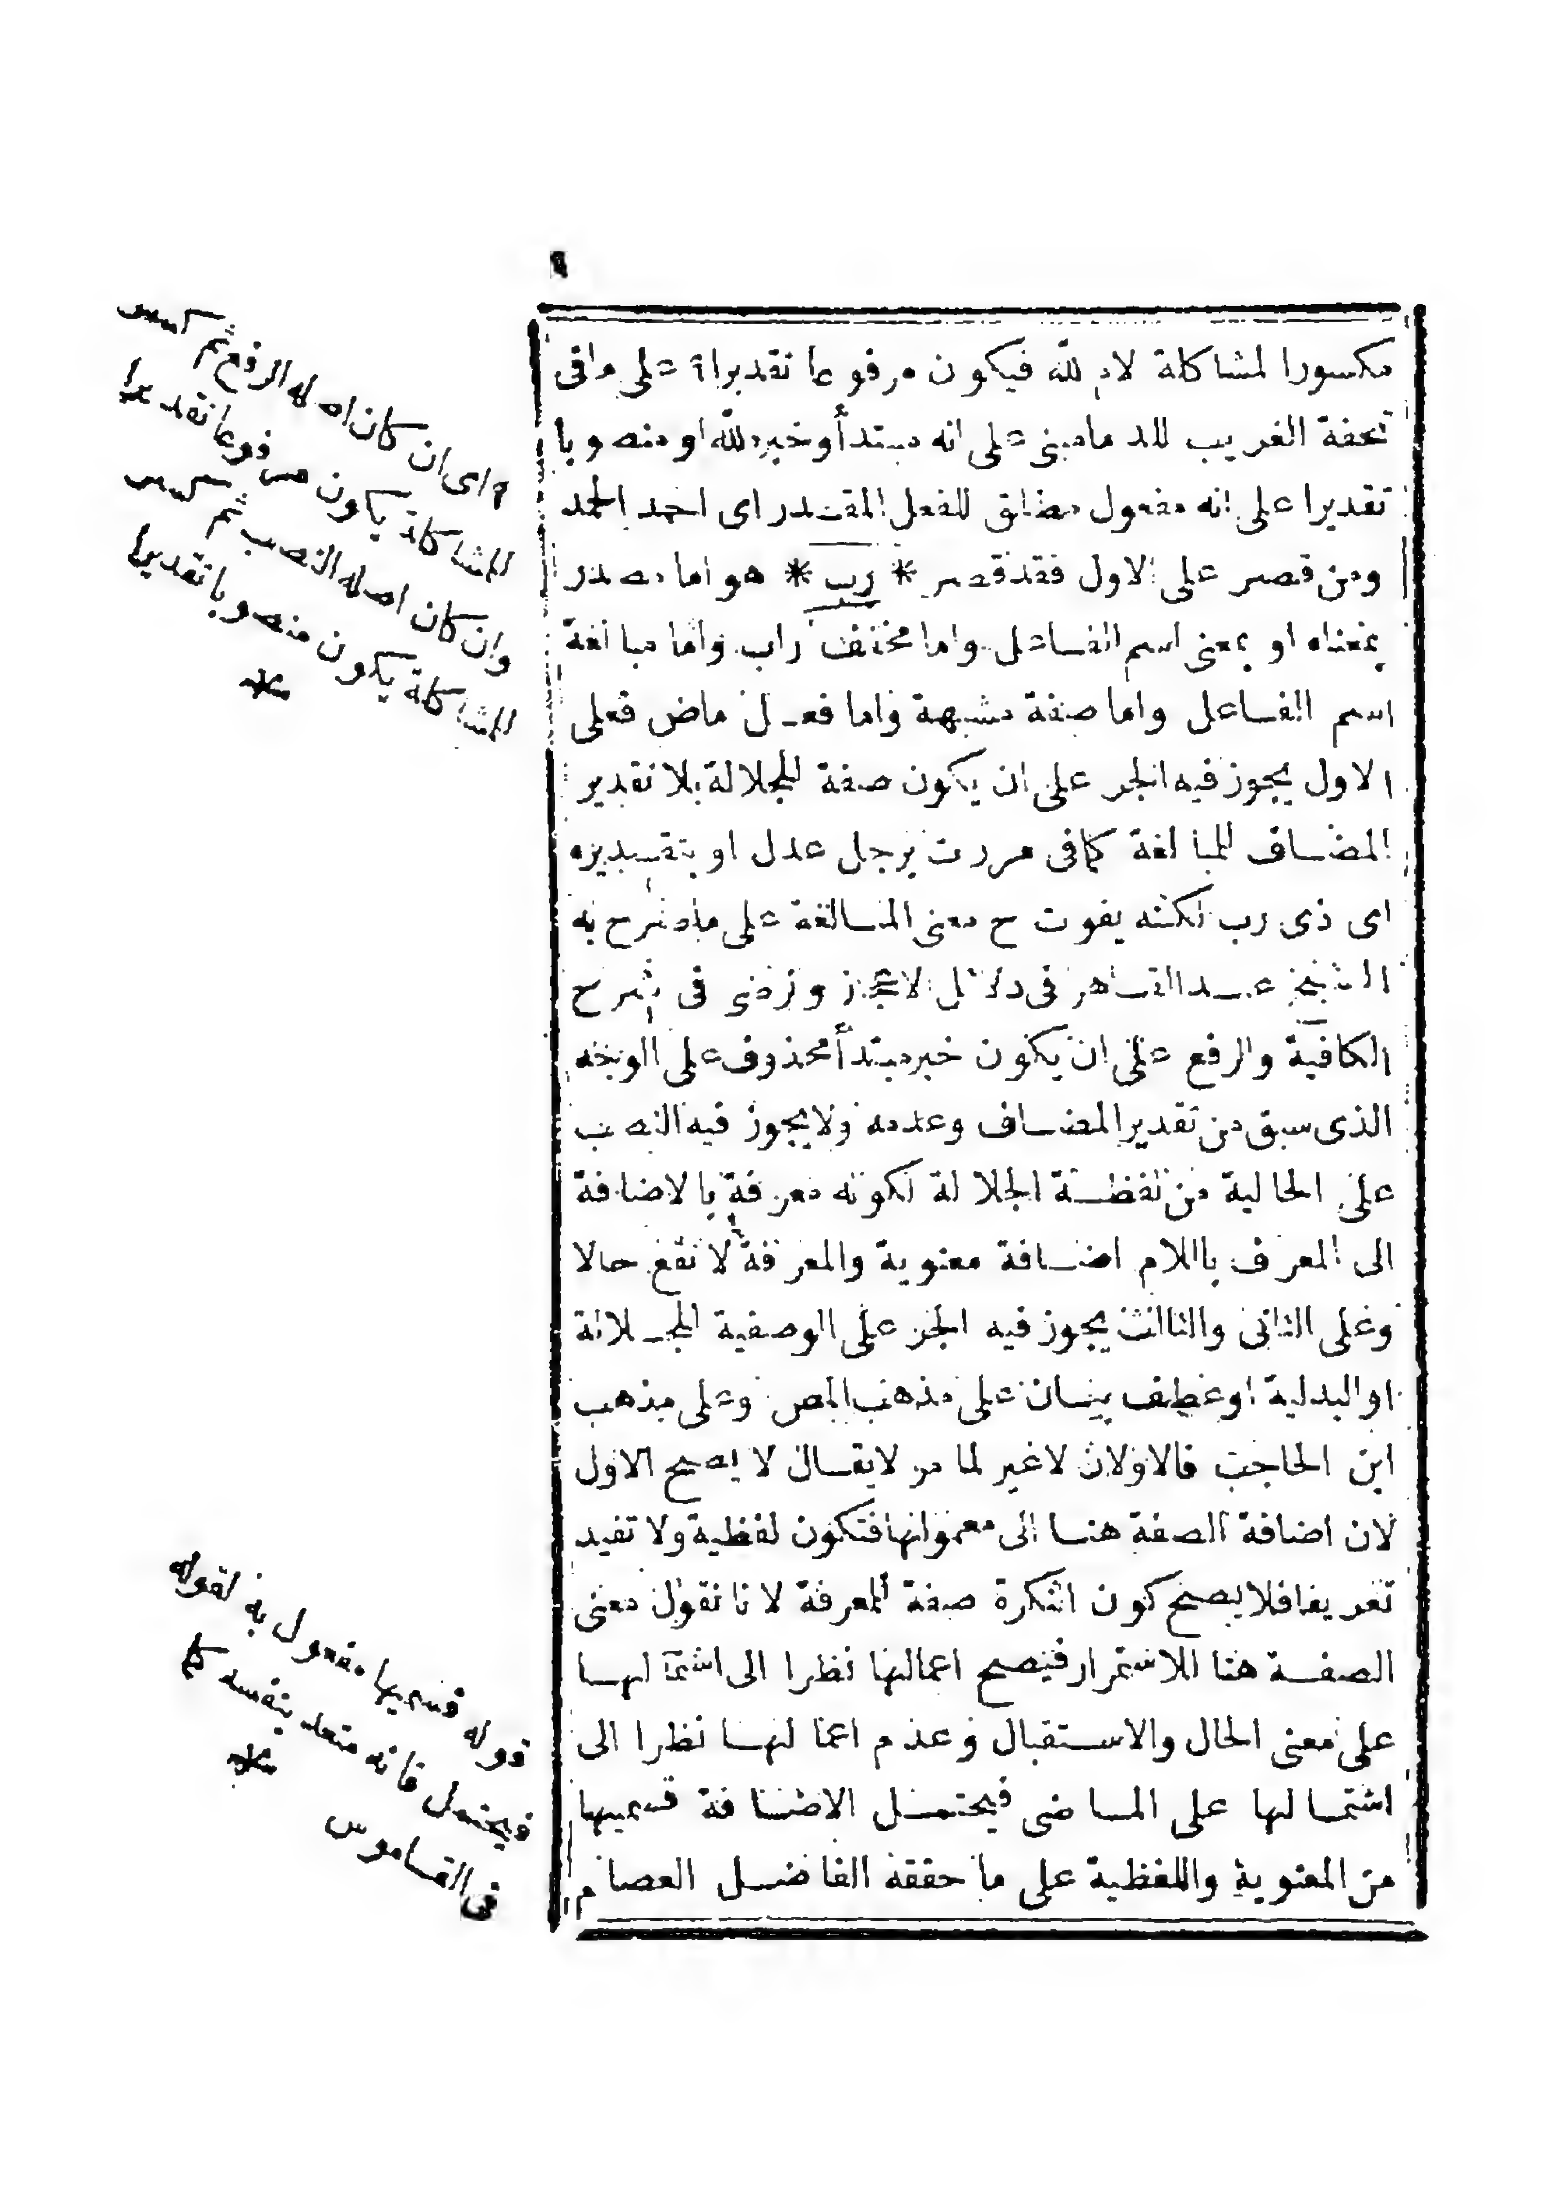 ٩
مكسورا لمشاكلة لام لله فيكون مرفوعا تقديرا ٩ على مافى
تحفة الغريب للدمامينى على انه مبتدأ وخبره لله او منصوبا
تقديرا على انه مفعول مطلق للفعل المقدر اى احمد الحمد
ومن قصر على الاول فقد قصر * رب * هو اما مصدر
بمعناه او بمعنى اسم الفاعل واما مخفف راب واما مبالغة
اسم الفاعل واما صفة مشبهة واما فعل ماض فعلى
الاول يجوز فيه الجر على ان يكون صفة للجلالة بلا تقدير
المضاف للمبالغة كما فى مررت برجل عدل او بتقديره
اى ذى رب لكنه يفوت ح معنى المبالغة على ما صرح به
الشيخ عبد القاهر فى دلائل الاعجاز ورضى فى شرح
الكافية والرفع على ان يكون خبر مبتدأ محذوف على الوجه
الذى سبق من تقدير المضاف وعدمه ولا يجوز فيه النصب
على الحالية من لفظة الجلالة لكونه معرفة بالاضافة
الى المعرف باللام اضافة معنوية والمعرفة لا تقع حالا
وعلى الثانى والثالث يجوز فيه الجر على الوصفية للجلالة
او البدلية او عطف بيان على مذهب المص وعلى مذهب
ابن الحاجب فالاولان لا غير لما مر لا يقال لا يصح الاول
لان اضافة الصفة هنا الى معمولها فتكون لفظية ولا تفيد
تعريفا فلا يصح كون النكرة صفة للمعرفة لانا نقول معنى
الصفة هنا للاستمرار فيصح اعمالها نظرا الى اشتمالها
على معنى الحال والاستقبال وعدم اعمالها نظرا الى
اشتمالها على الماضى فيحتمل الاضافة قسميها
من المعنوية واللفظية على ما حققه الفاضل العصام
٩ اى ان كان اصله الرفع ثم كسر
للمشاكلة يكون مرفوعا تقديرا
وان كان اصله النصب ثم كسر
للمشاكلة يكون منصوبا تقديرا
قوله قسميها مفعول به لقوله
فيحتمل فانه متعد بنفسه كما
فى القاموس